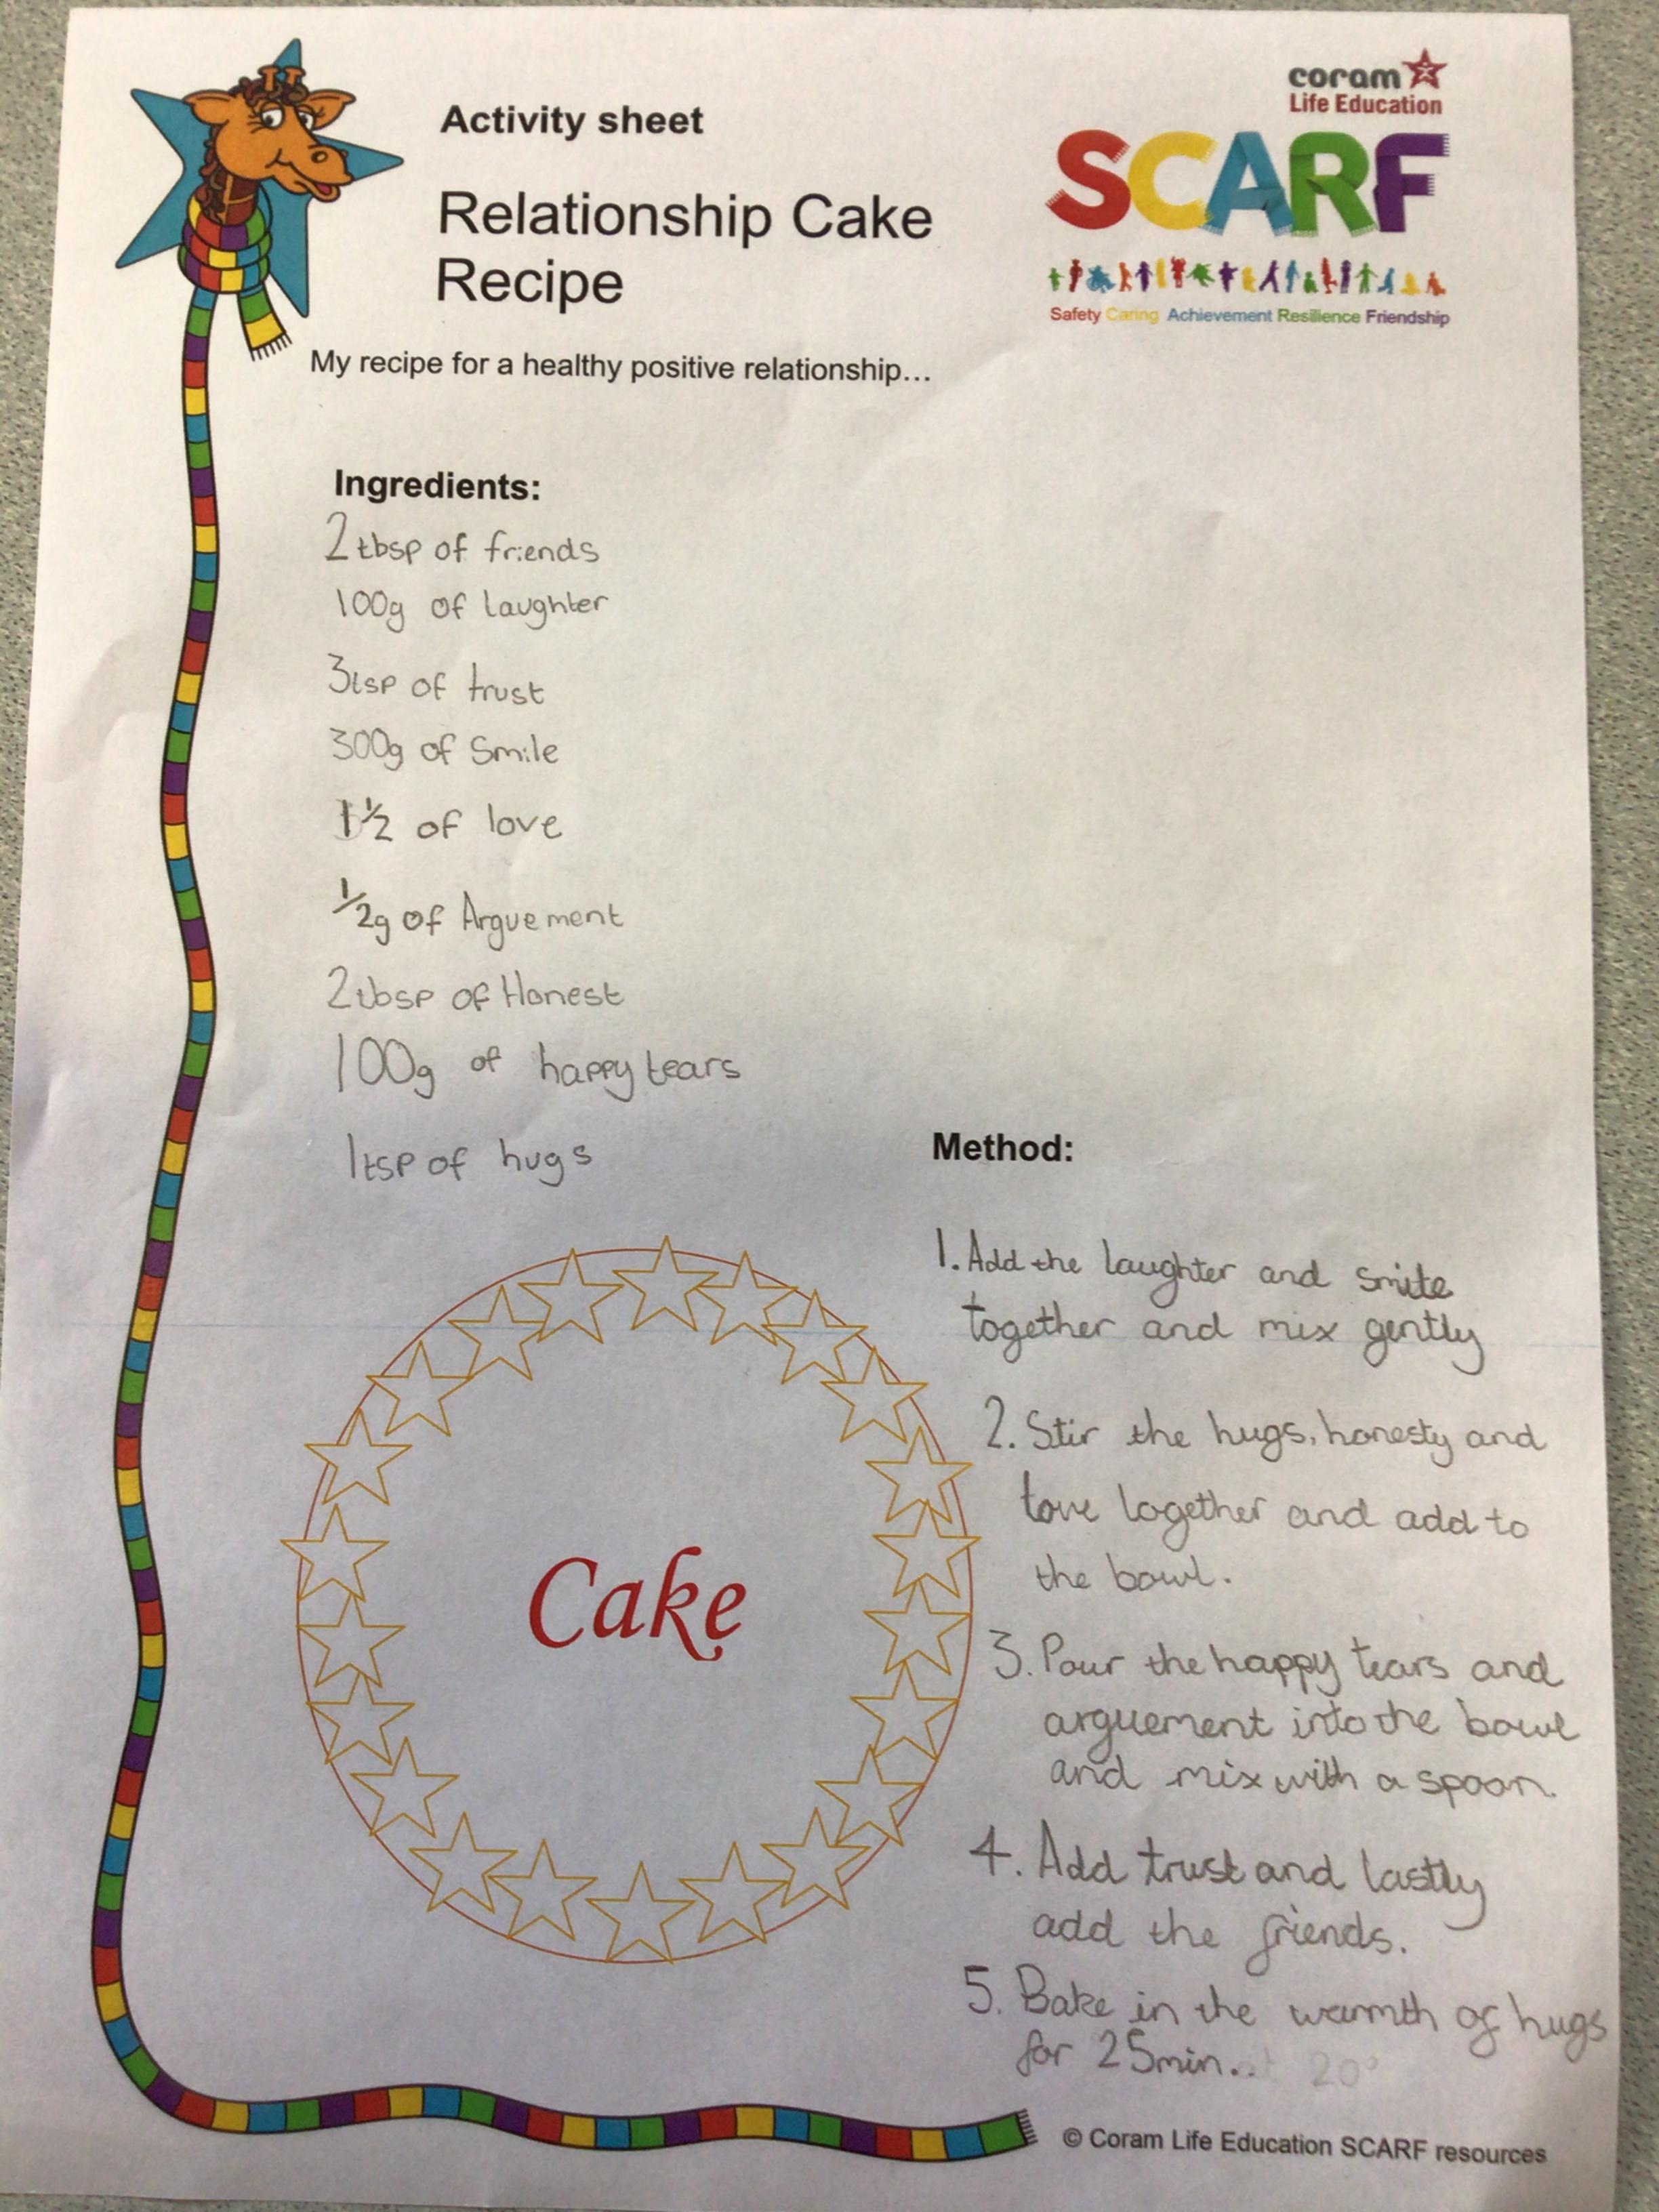 coram
Life Education
Activity sheet
SCARF
Relationship Cake
Recipe
Safety Caring Achievement Resilience Friendship
My recipe for a healthy positive relationship...
Ingredients:
2tbsp of friends
100g of laughter
3tsp of trust
300g of Smile
1½ of love
½g of Arguement
2tbsp of Honest
100g of happy tears
1tsp of hugs
Cake
Method:
1. Add the laughter and smile
together and mix gently
2. Stir the hugs, honesty and
love together and add to
the bowl.
3. Pour the happy tears and
arguement into the bowl
and mix with a spoon.
4. Add trust and lastly
add the friends.
5. Bake in the warmth of hugs
for 25min..
© Coram Life Education SCARF resources